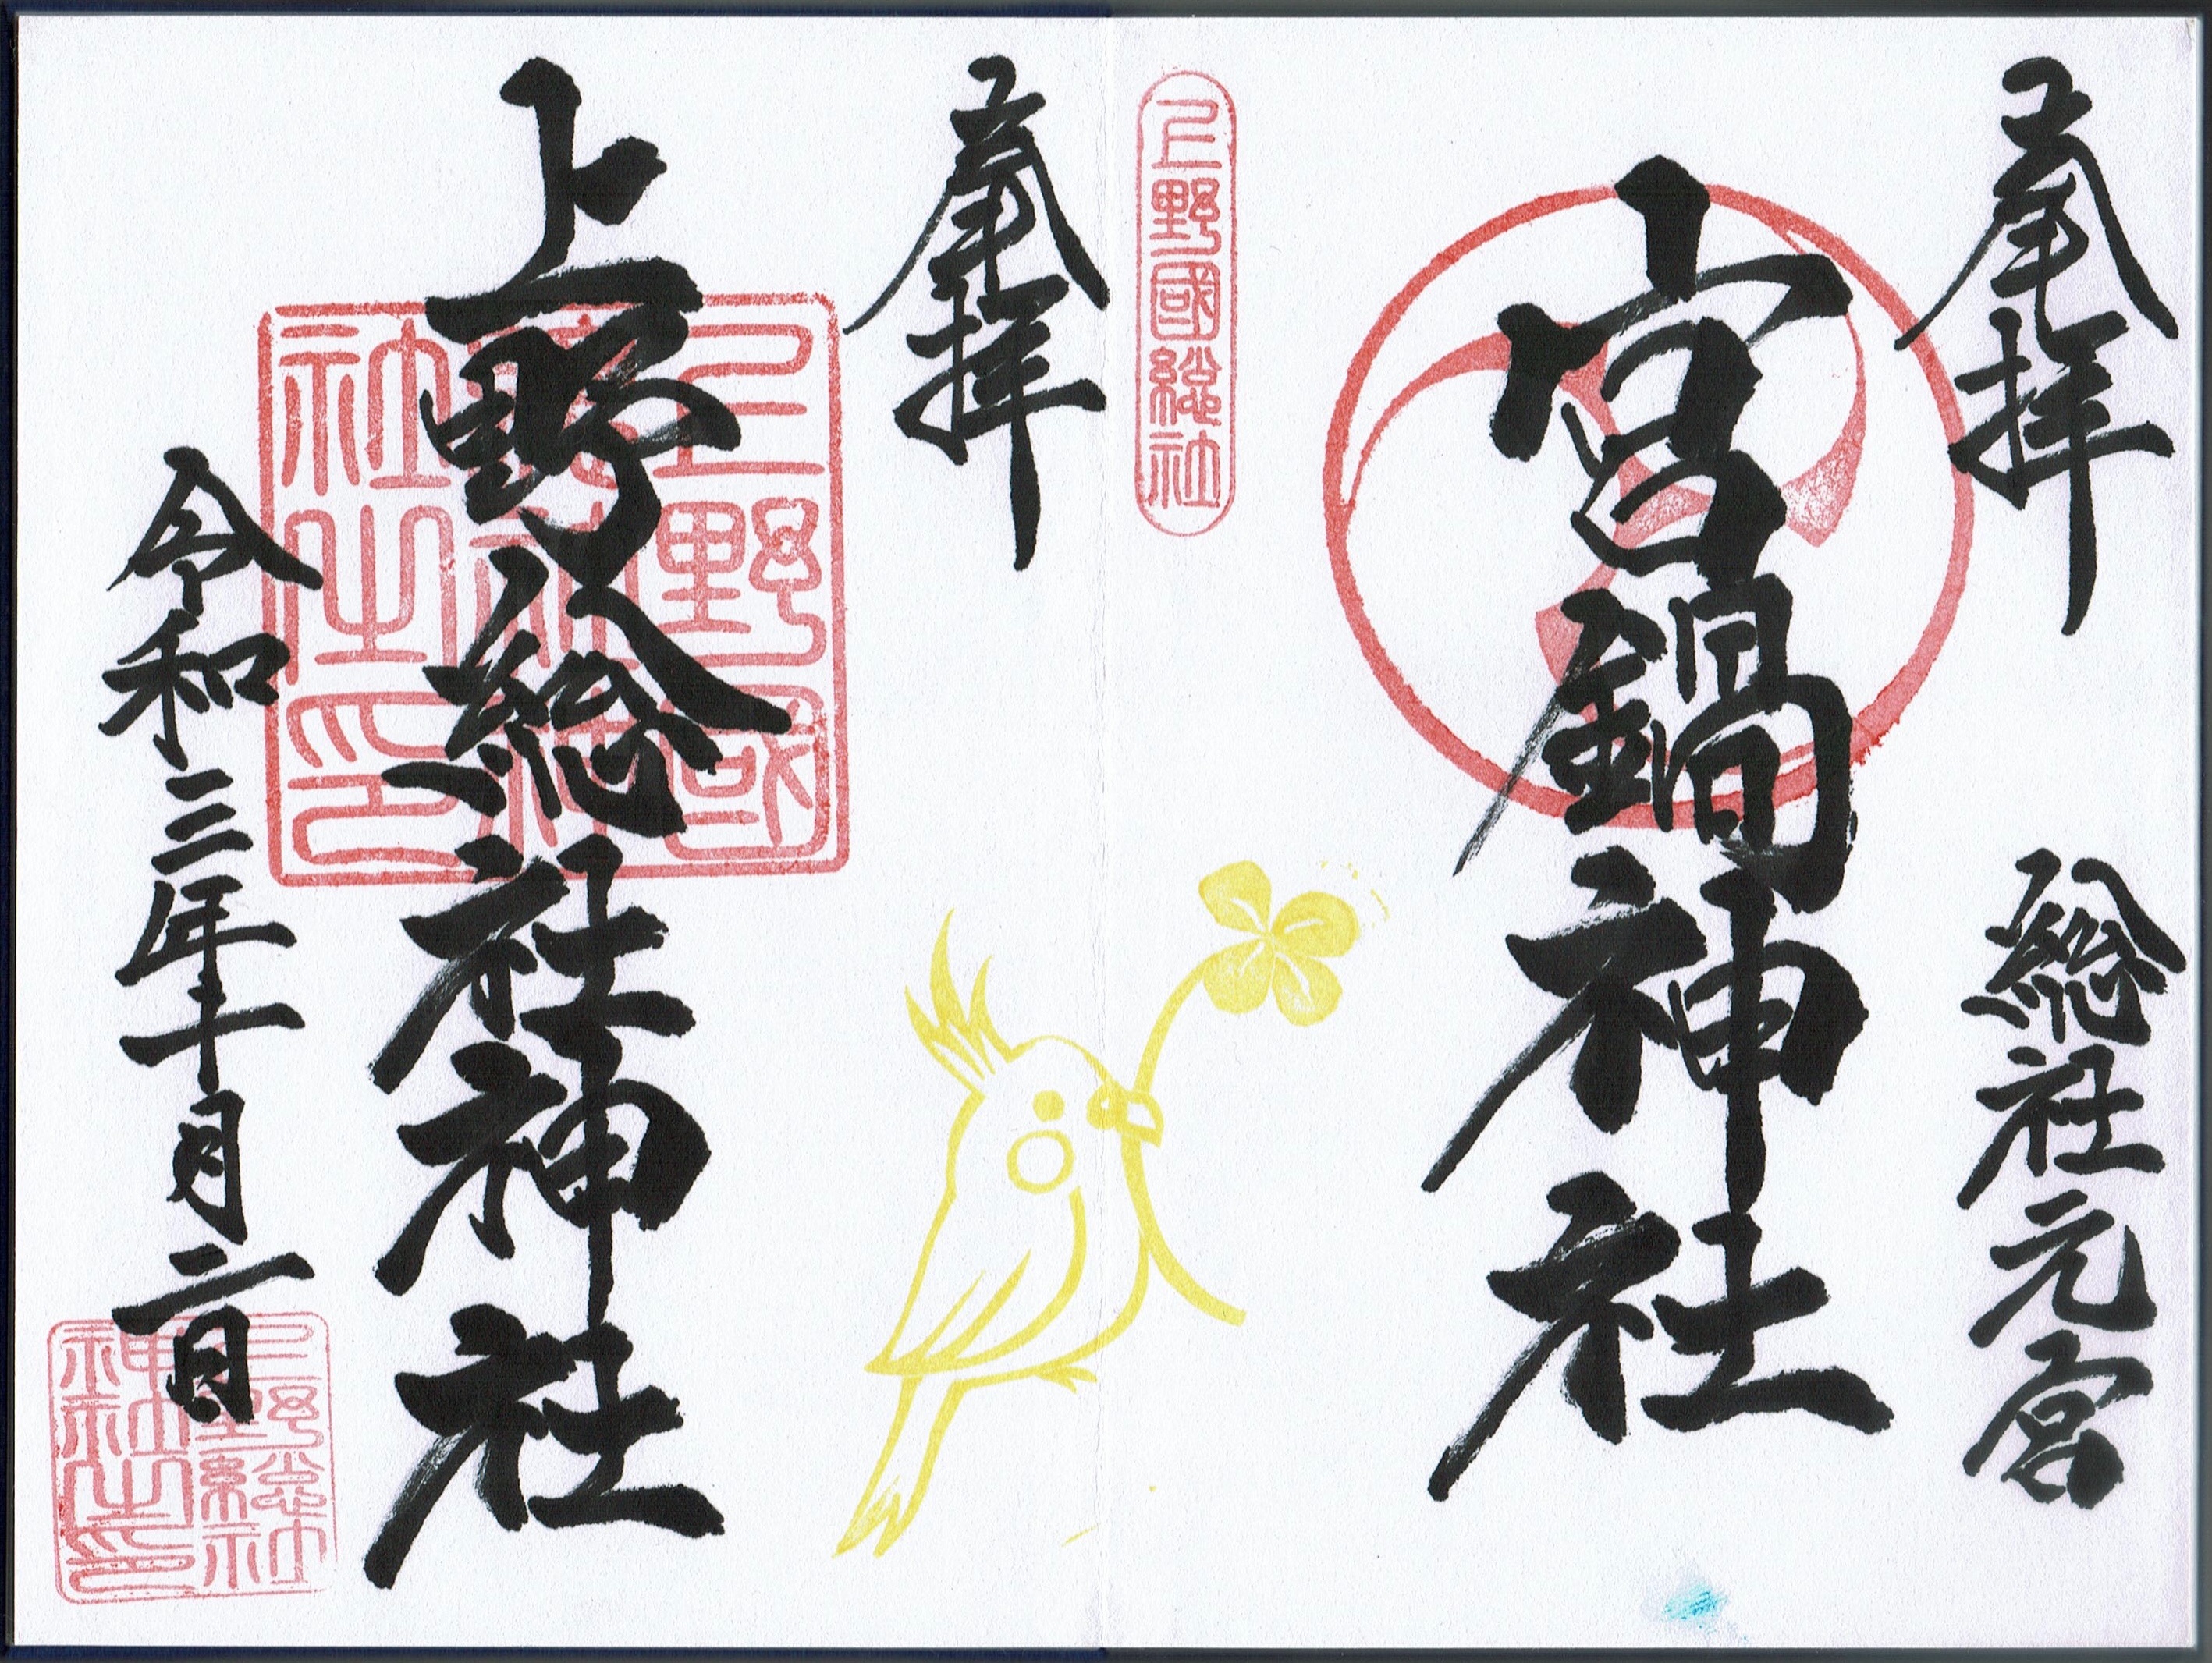 奉拝 総社元宮
宮鍋神社
上野國総社
奉拝
上野総社神社
上野國
総社神
社之印
令和三年十月二日
上野総社
神社之印